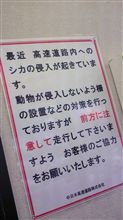 最近 高速道路内への
シカの侵入が起きています。
動物が侵入しないよう柵
の設置などの対策を行っ
ておりますが 前方に注
意して走行して下さいま
すよう お客様のご協力
をお願いいたします。
中日本高速道路株式会社